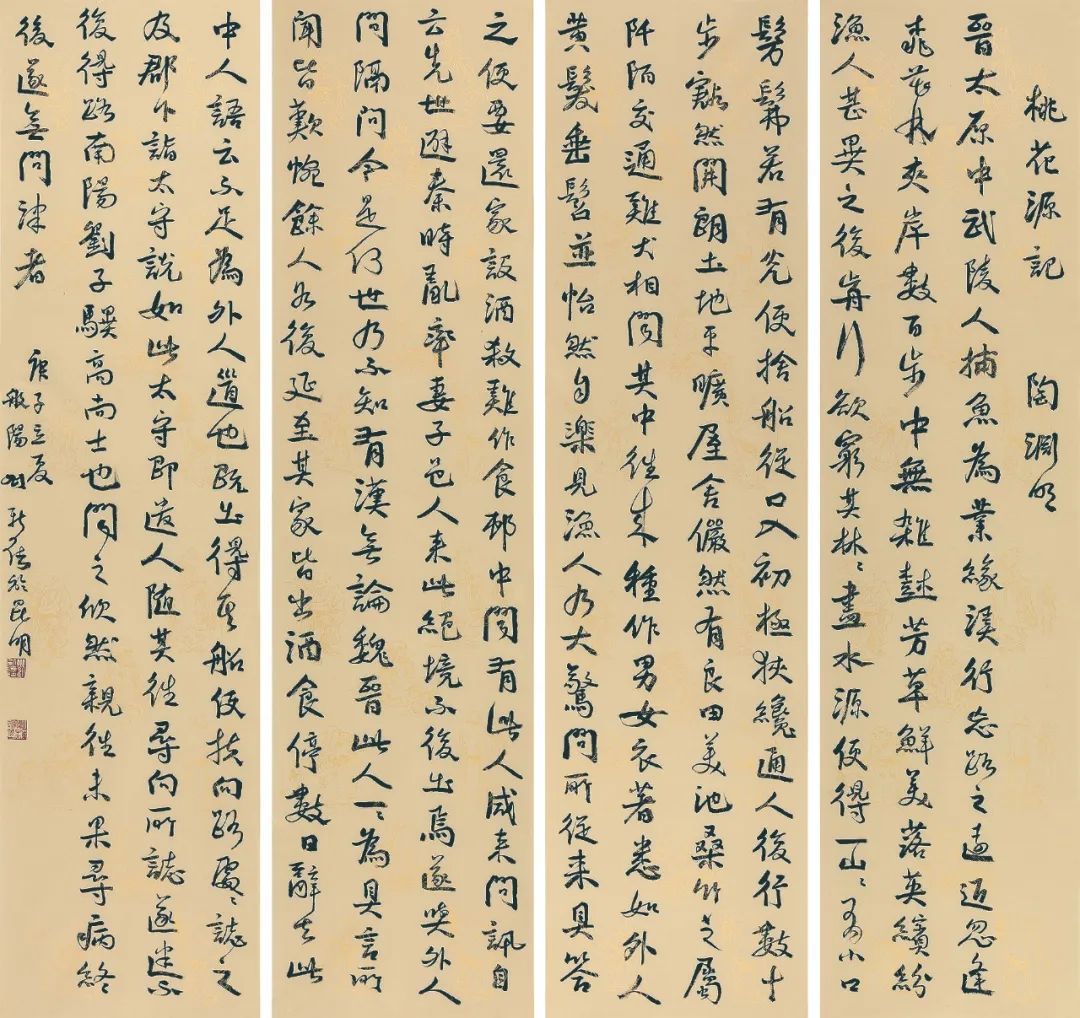 桃花源記　陶淵明
晉太原中武陵人捕魚為業緣溪行忘路之遠近忽逢
桃花林夾岸數百步中無雜樹芳草鮮美落英繽紛
漁人甚異之復前行欲窮其林〻盡水源便得一山〻有小口
髣髴若有光便捨船從口入初極狹纔通人復行數十
步豁然開朗土地平曠屋舍儼然有良田美池桑竹之屬
阡陌交通雞犬相聞其中往來種作男女衣著悉如外人
黃髮垂髫並怡然自樂見漁人乃大驚問所從來具答
之便要還家設酒殺雞作食邨中聞有此人咸來問訊自
云先世避秦時亂率妻子邑人來此絕境不復出焉遂與外人
間隔問今是何世乃不知有漢無論魏晉此人一〻為具言所
聞皆歎惋餘人各復延至其家皆出酒食停數日辭去此
中人語云不足為外人道也既出得其船便扶向路處〻誌之
及郡下詣太守說如此太守即遣人隨其往尋向所誌遂迷不
復得路南陽劉子驥高尚士也聞之欣然親往未果尋病終
後遂無問津者
庚子立夏
般陽 於昆明